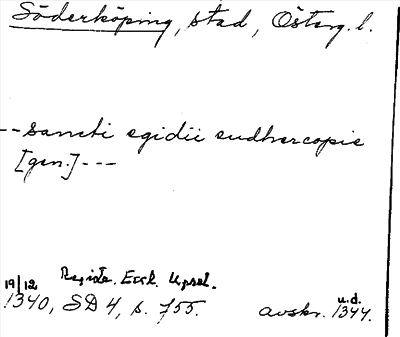 Söderköping, stad, Österg. l.
--sancti egidii sudhercopie
[gen.]---
19/12 Registr. Eccl. Upsal.
1340, SD 4, s. 755. avskr. u.d. 1344.